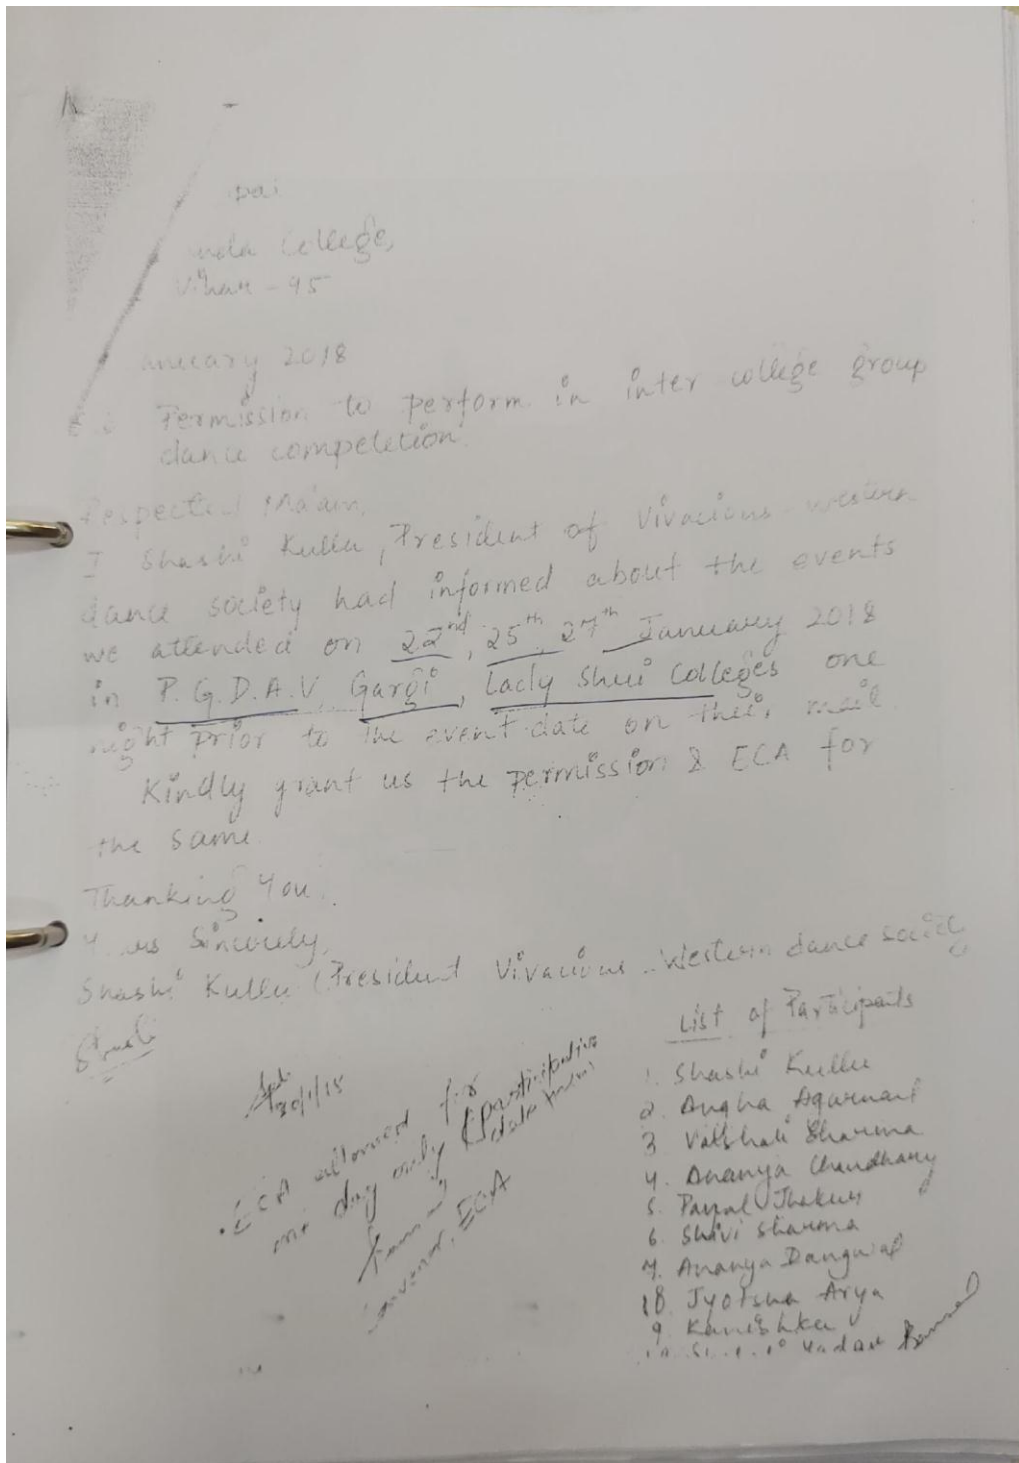 pai
nda College,
Vihar - 95
anuary 2018
Permission to perform in inter college group
dance competetion.
Respected Ma'am,
I Shashi Kullu, President of Vivacious western
dance society had informed about the events
we attended on 22nd, 25th, 27th January 2018
in P.G.D.A.V, Gargi, Lady Shri Colleges one
night prior to the event date on their mail
Kindly grant us the permission & ECA for
the same.
Thanking You.
Sincerely,
Shashi Kullu (President Vivacious Western dance society
List of Participants
1. Shashi Kullu
2. Angha Agarwal
3 Vaishali Sharma
4. Ananya Chaudhary
5. Payal Thakur
6. Shivi Sharma
7. Ananya Dangwal
18. Jyotsna Arya
9. Kanishka
Yadav
30/1/18
ECA allowed for
one day only (participation
convenor, ECA